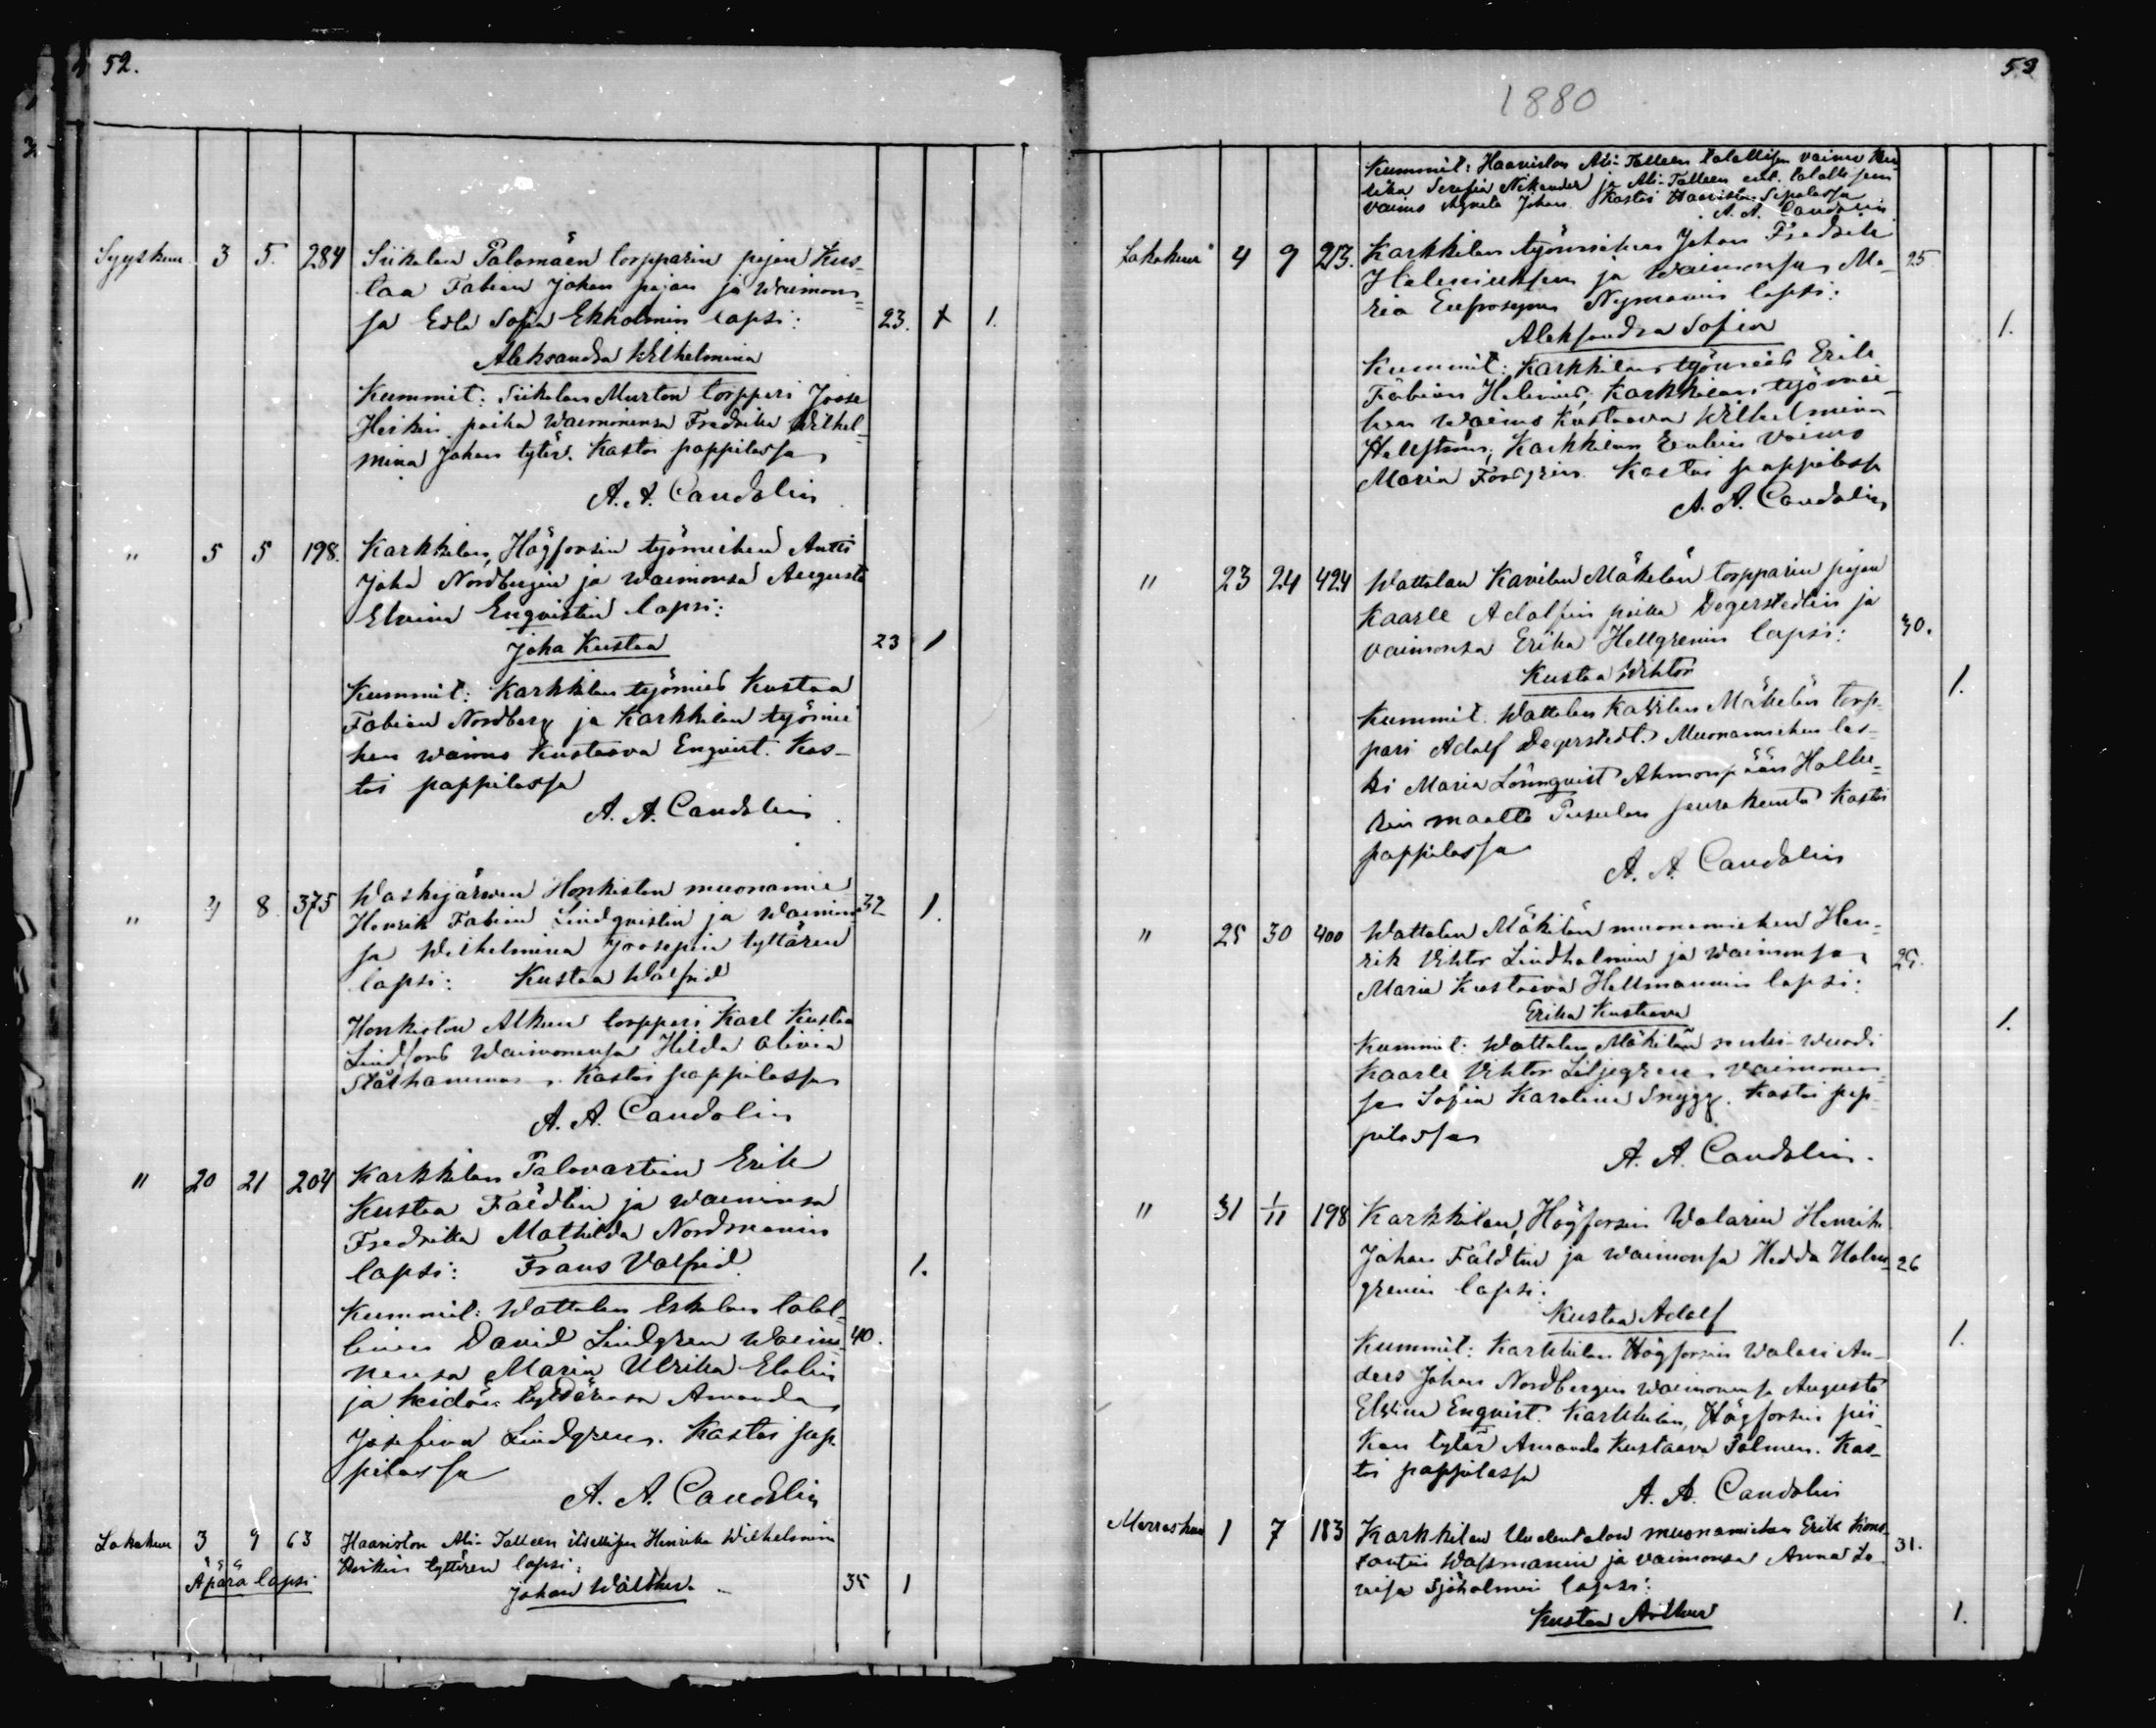 52.
Syyskuu 3 5. 284 Siikalan Palomäen torpparin pojan Kus=
taa Fabian Johan pojan ja Waimon=
sa Edla Sofia Ekholmin lapsi: 23. X 1.
Aleksandra Wilhelmina
Kummit: Siikalan Murton torppari Joose
Heikin poika Waimonensa Fredrika Wilhel=
mina Johan tytär. Kastoi pappilassa
A. A. Candolin
" 5 5 198. Karkkilan, Högforsin työmiehen Antti
Joha Nordbergin ja Waimonsa Augusta
Elviina Enqvistin lapsi:
Joha Kustaa 23 1
Kummit: Karkkilan työmies Kustaa
Fabian Nordberg ja Karkkilan työmie
hen waimo Kustaava Enqvist. Kas-
toi pappilassa
A. A. Candolin
" 4 8. 375 Waskijärwen Honkiston muonamie
Henrik Fabian Lindqvistin ja Waimon 32 1.
sa Wilhelmina Joosepin tyttären
lapsi: Kustaa Walfrid
Honkiston Alkun torppari Karl Kustaa
Lindfors Waimonensa Hilda Olivia
Stålhammar. Kastoi pappilassa
A. A. Candolin
" 20 21 204 Karkkilan Palovartian Erik
Kustaa Fäldtin ja waimonsa
Fredrika Mathilda Nordmanin
lapsi: Frans Valfrid 1.
Kummit: Wattolan Eskolan talol=
linen David Lindgren Waimo= 40.
nensa Maria Ulrika Elolin
ja heidän tyttärensä Amanda
Josefina Lindgren. Kastoi pap
pilassa
A. A. Candolin
Lokakuu 3 9 63 Haaviston Ali-Talleen itsellisen Henrika Wilhelmina
Heikin tyttären lapsi:
Äpärä lapsi Johan Walther. 35 1
53
1880
Kummit: Haaviston Ali-Talleen talollisen vaimo Hen
rika Serafia Nikander ja Ali-Talleen ent. talollisen
vaimo Agneta Johan. Kastoi Haaviston Sepalassa
A. A. Candolin
Lokakuu 4 9 213. Karkkilan työmiehen Johan Fredrik
Heleniuksen ja Waimonsa Ma- 25
ria Eufrosyna Nymanin lapsi:
Aleksandra Sofia 1.
Kummit: Karkkilan työmies Erik
Fabian Helenius, Karkkilan työmie
hen Waimo Kustaava Wilhelmina
Hellström, Karkkilan Waimo
Maria Forsgren. Kastoi pappilassa
A. A. Candolin
" 23 24 424 Wattolan Kavilan Mäkelän torpparin pojan
Kaarle Adolfin poika Degerstedtin ja
vaimonsa Erika Hellgrenin lapsi: 30.
Kustaa Wihtor 1.
Kummit. Wattolan Kavilan Mäkelän torp
pari Adolf Degerstedt. Muonamiehen les=
ki Maria Lönnqvist Ahmonpään Halke=
rin maalta Pusulan seurakunta Kastoi
pappilassa
A. A. Candolin
" 25 30 400 Wattolan Mäkilän muonamiehen Hen=
rik Vihtor Lindholmin ja Waimonsa 29.
Maria Kustaava Hellmannin lapsi:
Erika Kustaava 1.
Kummit: Wattolan Mäkilän Wuodi
Kaarle Vihtor Liljegren Vaimonen=
sa Sofia Karolina Snygg. Kastoi pap-
pilassa
A. A. Candolin.
" 31 1/11 198 Karkkilan, Högforsin Walarin Henrik
Johan Fäldtin ja Waimonsa Hedda Holm= 26
grenin lapsi:
Kustaa Adolf 1.
Kummit: Karkkilan Högforsin Walari An-
ders Johan Nordbergin Waimonensa Augusta
Elviina Enqvist. Karkkilan, Högforsin pii-
kan tytär Amanda Kustaava Palmen. Kas-
toi pappilassa
A. A. Candolin
Marraskuu 1 7 183 Karkkilan Uudentalon muonamiehen Erik Kons-
tantin Wassmanin ja vaimonsa Anna Lo 31.
viisa Sjöholmin lapsi:
Kustaa Arthur 1.